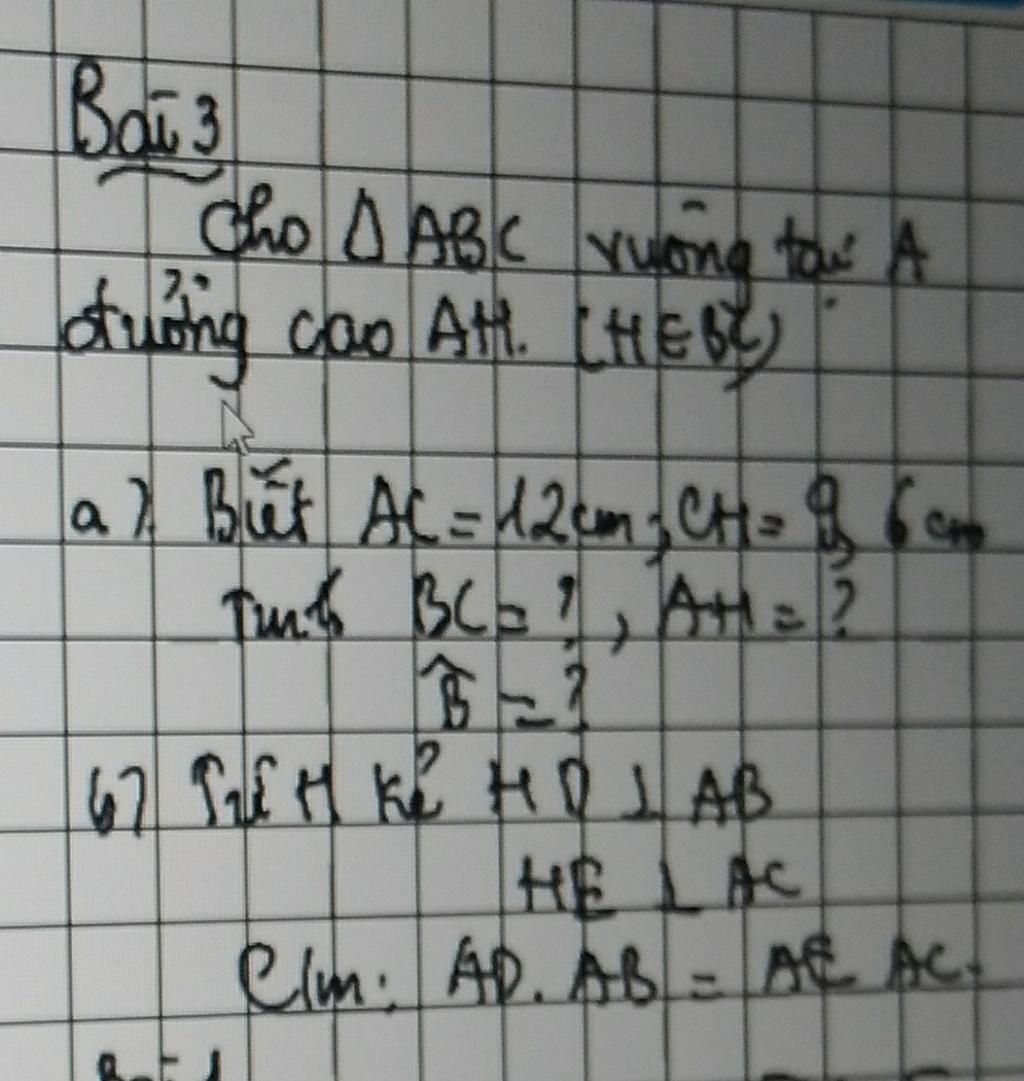 Bài 3
Cho Δ ABC vuông tại A
đường cao AH. (H∈BC)
a) Biết AC = 12cm; CH = 9,6cm
Tính BC = ?, AH = ?
B̂ = ?
b) Từ H kẻ HD ⊥ AB
HE ⊥ AC
C/m: AD. AB = AE AC.